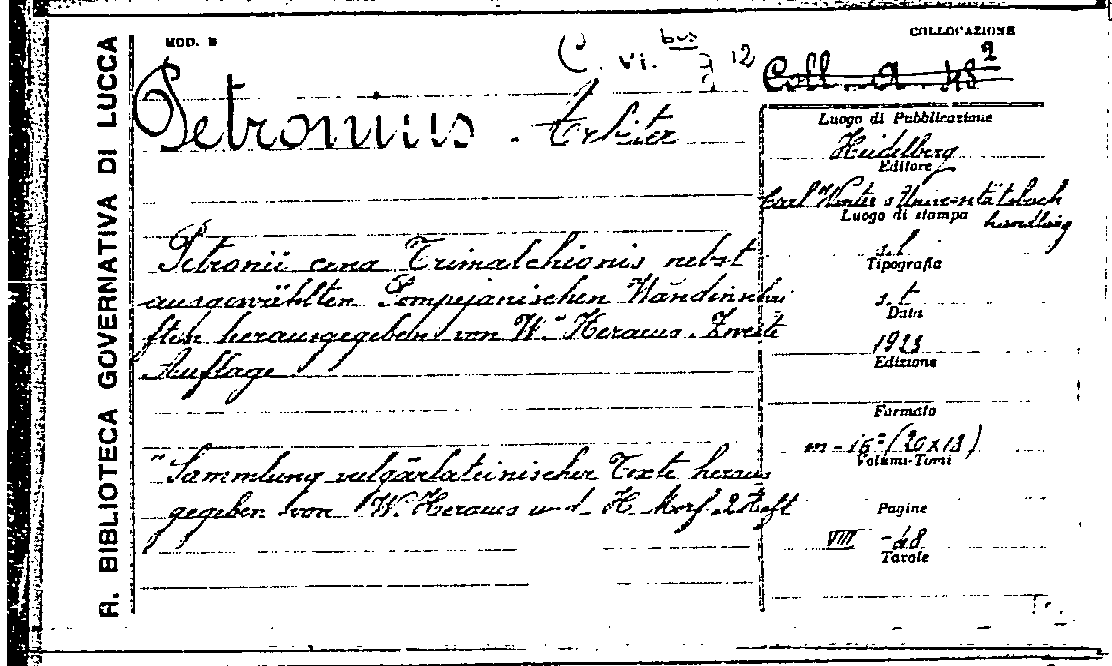 R. BIBLIOTECA GOVERNATIVA DI LUCCA
MOD. B
COLLOCAZIONE
C. vi. bis 12
Coll. a. 48²
Petronius Arbiter
Luogo di Pubblicazione
Heidelberg
Editore
Carl Winter's Universitätsbuch
handlung
Luogo di stampa
s. l.
Tipografia
s. t
Data
1923
Edizione
Formato
in-16° (20x13)
Volumi-Tomi
Pagine
VIII - 48
Tavole
Petronii cena Trimalchionis nebst
ausgewählten Pompejanischen Wandinschri
ften herausgegeben von W. Heraeus. Zweite
Auflage
"Sammlung vulgärlateinischer Texte heraus
gegeben von W. Heraeus und H. Morf. 2 Heft